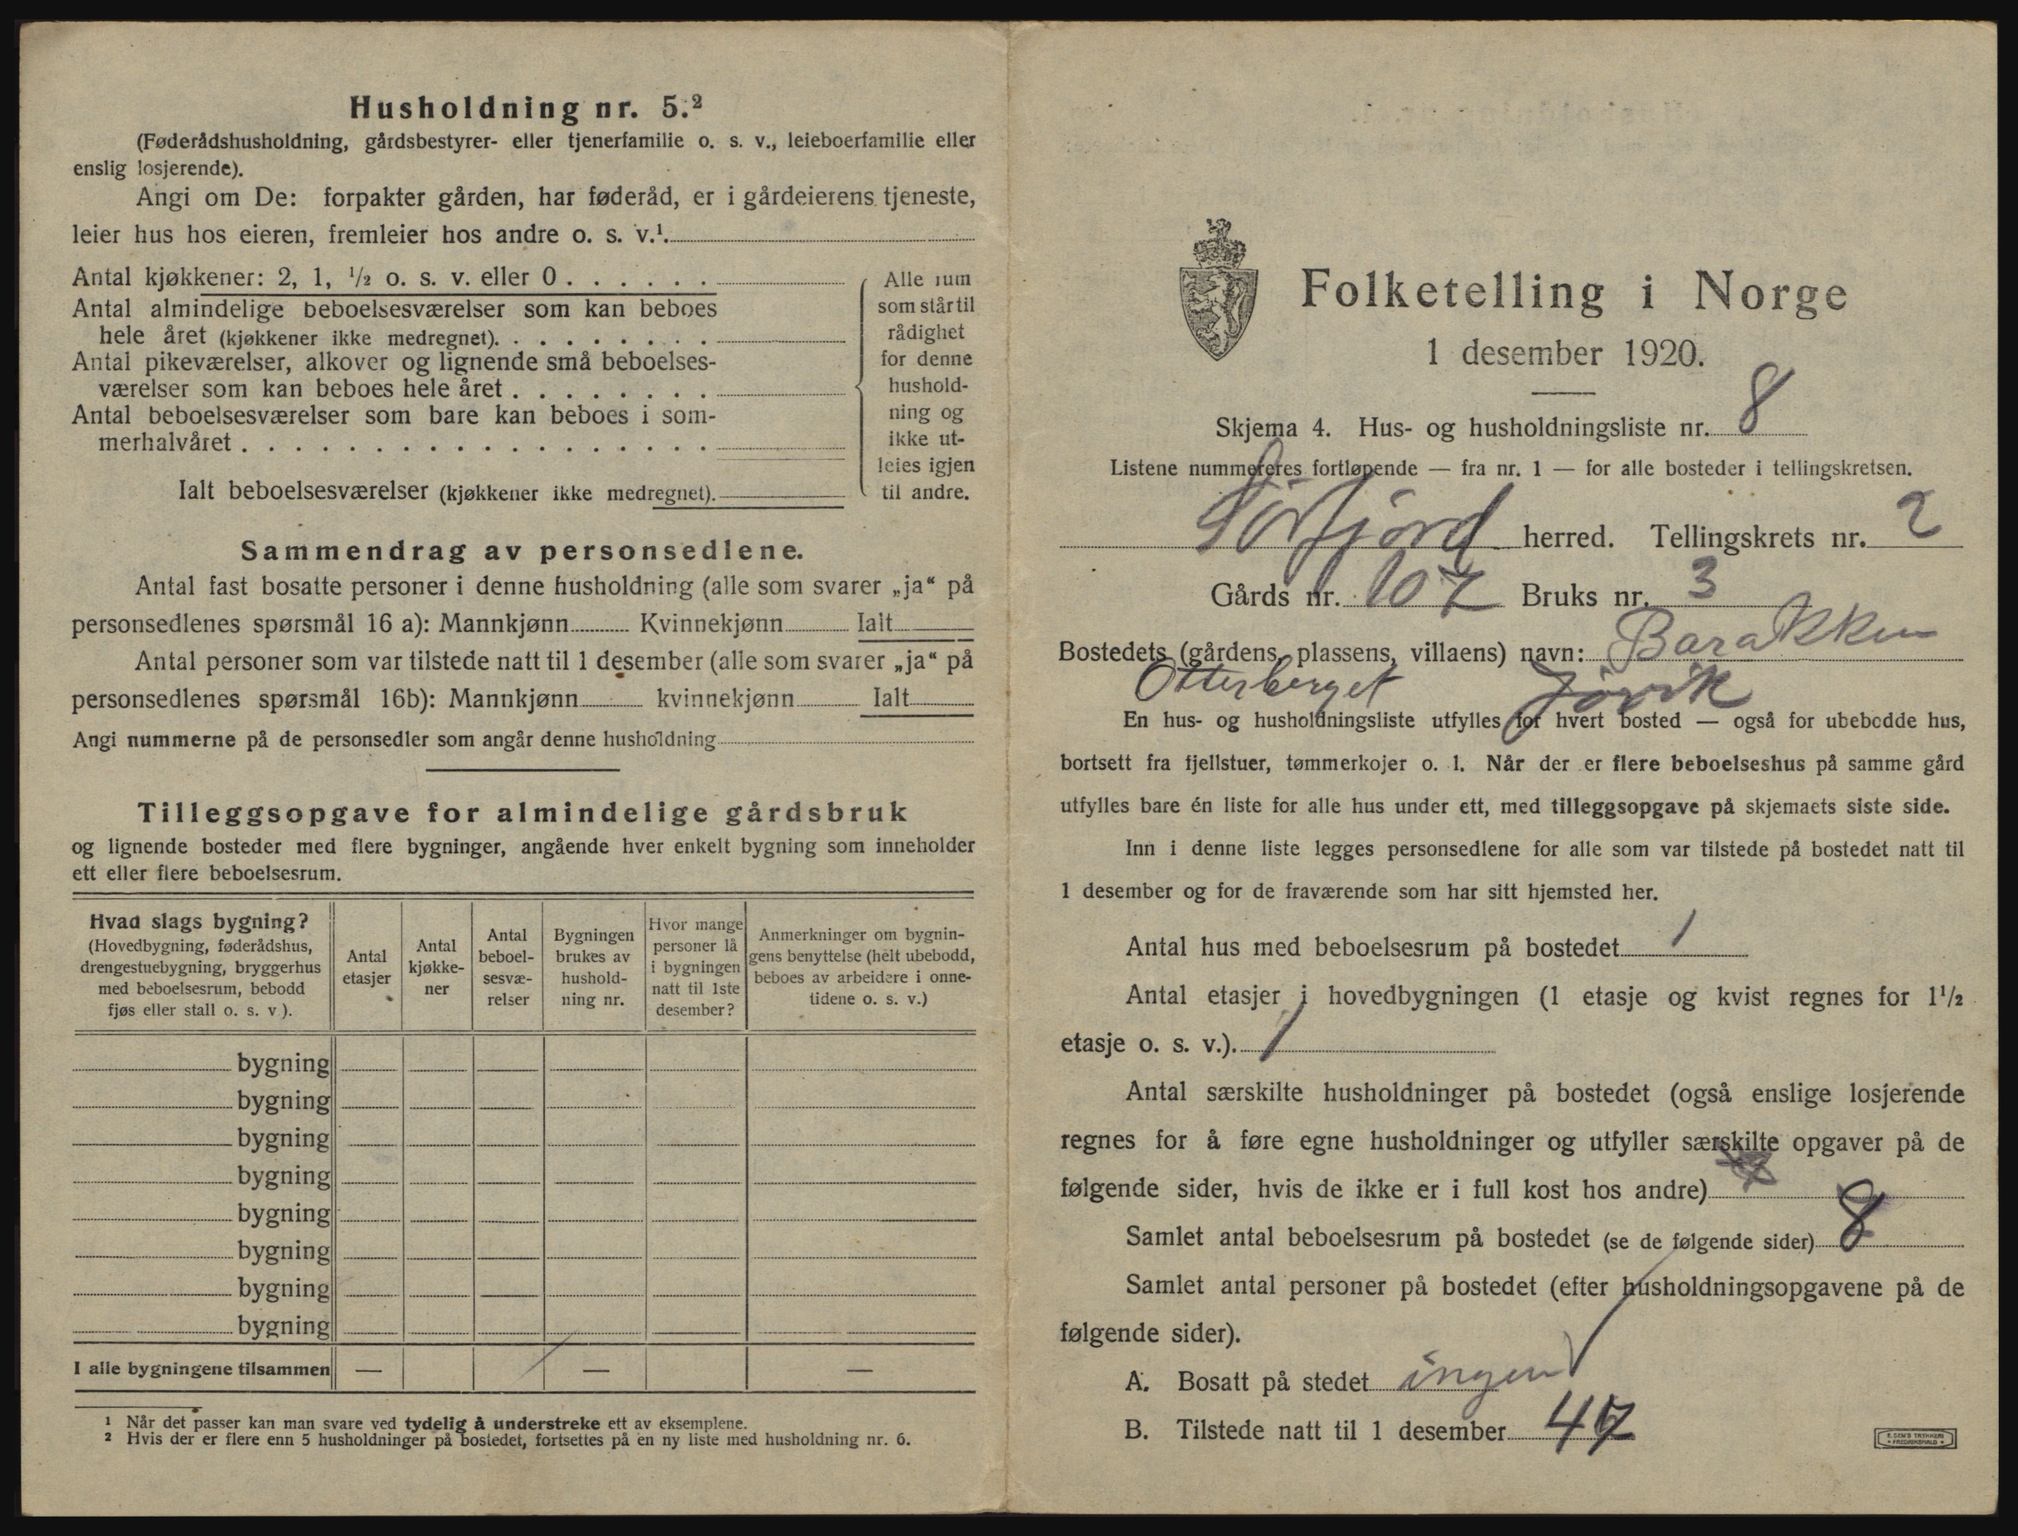 Husholdning nr. 5.²
(Føderådshusholdning, gårdsbestyrer- eller tjenerfamilie o. s. v., leieboerfamilie eller
enslig losjerende).
Angi om De: forpakter gården, har føderåd, er i gårdeierens tjeneste,
leier hus hos eieren, fremleier hos andre o. s. v.¹.
Antal kjøkkener: 2, 1, ¹/₂ o. s. v. eller 0
Antal almindelige beboelsesværelser som kan beboes
hele året (kjøkkener ikke medregnet).
Antal pikeværelser, alkover og lignende små beboelses-
værelser som kan beboes hele året
Antal beboelsesværelser som bare kan beboes i som-
merhalvåret
Ialt beboelsesværelser (kjøkkener ikke medregnet).
Alle rum
som står til
rådighet
for denne
hushold-
ning og
ikke ut-
leies igjen
til andre.
Sammendrag av personsedlene.
Antal fast bosatte personer i denne husholdning (alle som svarer „ja“ på
personsedlenes spørsmål 16 a): Mannkjønn Kvinnekjønn Ialt
Antal personer som var tilstede natt til 1 desember (alle som svarer „ja“ på
personsedlenes spørsmål 16b): Mannkjønn kvinnekjønn Ialt
Angi nummerne på de personsedler som angår denne husholdning
Tilleggsopgave for almindelige gårdsbruk
og lignende bosteder med flere bygninger, angående hver enkelt bygning som inneholder
ett eller flere beboelsesrum.
Hvad slags bygning?
(Hovedbygning, føderådshus,
drengestuebygning, bryggerhus
med beboelsesrum, bebodd
fjøs eller stall o. s. v ).
Antal
etasjer
Antal
kjøkke-
ner
Antal
beboel-
sesvæ-
relser
Bygningen
brukes av
hushold-
ning nr.
Hvor mange
personer lå
i bygningen
natt til 1ste
desember?
Anmerkninger om bygnin-
gens benyttelse (helt ubebodd,
beboes av arbeidere i onne-
tidene o. s. v.)
bygning
bygning
bygning
bygning
bygning
bygning
bygning
bygning
I alle bygningene tilsammen — — —
¹ Når det passer kan man svare ved tydelig å understreke ett av eksemplene.
² Hvis der er flere enn 5 husholdninger på bostedet, fortsettes på en ny liste med husholdning nr. 6.
Folketelling i Norge
1 desember 1920.
Skjema 4. Hus- og husholdningsliste nr. 8
Listene nummereres fortløpende — fra nr. 1 — for alle bosteder i tellingskretsen.
Sörfjord herred. Tellingskrets nr. 2
Gårds nr. 107 Bruks nr. 3
Bostedets (gårdens, plassens, villaens) navn: Barakken
Otterberget Jövik
En hus- og husholdningsliste utfylles for hvert bosted — også for ubebodde hus,
bortsett fra fjellstuer, tømmerkojer o. l. Når der er flere beboelseshus på samme gård
utfylles bare én liste for alle hus under ett, med tilleggsopgave på skjemaets siste side.
Inn i denne liste legges personsedlene for alle som var tilstede på bostedet natt til
1 desember og for de fraværende som har sitt hjemsted her.
Antal hus med beboelsesrum på bostedet 1
Antal etasjer i hovedbygningen (1 etasje og kvist regnes for 1¹/₂
etasje o. s. v.). 1
Antal særskilte husholdninger på bostedet (også enslige losjerende
regnes for å føre egne husholdninger og utfyller særskilte opgaver på de
følgende sider, hvis de ikke er i full kost hos andre)
Samlet antal beboelsesrum på bostedet (se de følgende sider) 8
Samlet antal personer på bostedet (efter husholdningsopgavene på de
følgende sider).
A. Bosatt på stedet ingen
B. Tilstede natt til 1 desember 47